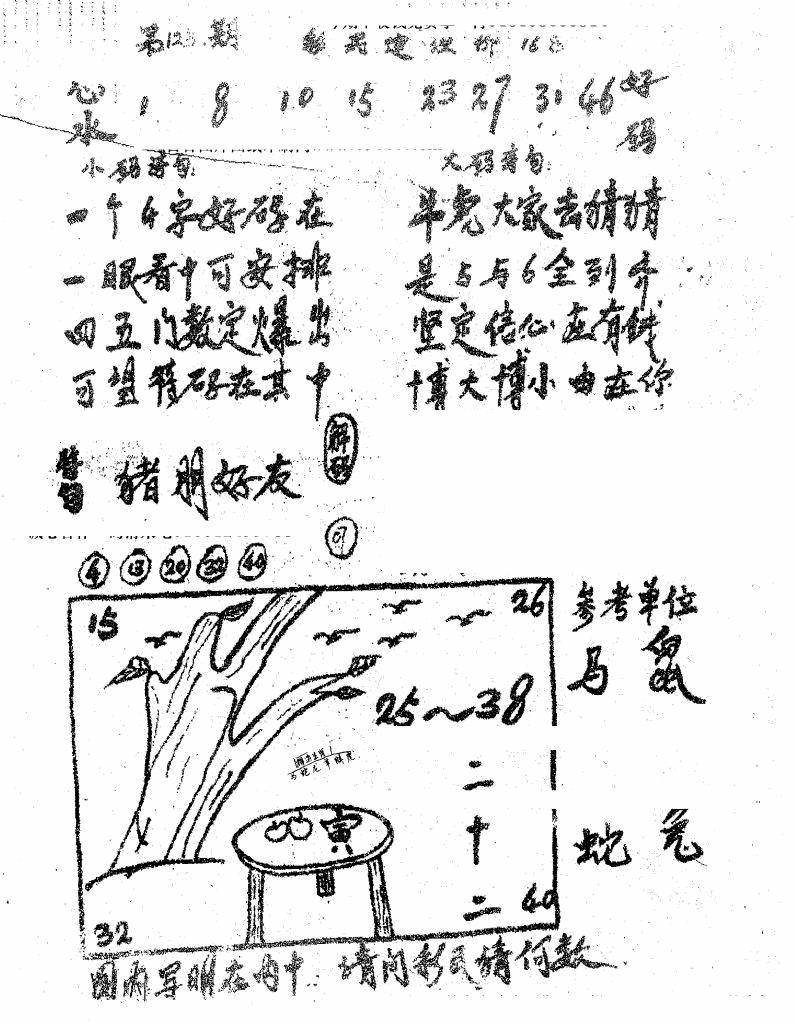 第123期 彩民建议价
心水 1 8 10 15 23 27 31 46 好码
小码诗句:
一个4字好码在
一眼看中可安排
四五门数定爆出
可望特码在其中
大码诗句:
斗虎大家去猜猜
是5与6全到齐
坚定信心应有钱
博大博小由在你
猪朋好友
解码
07
4 13 20 32 40
15 26
25～38
二十二
寅
40
32
参考单位
马 鼠
蛇 兔
图内写明在内中 请问彩民猜何数